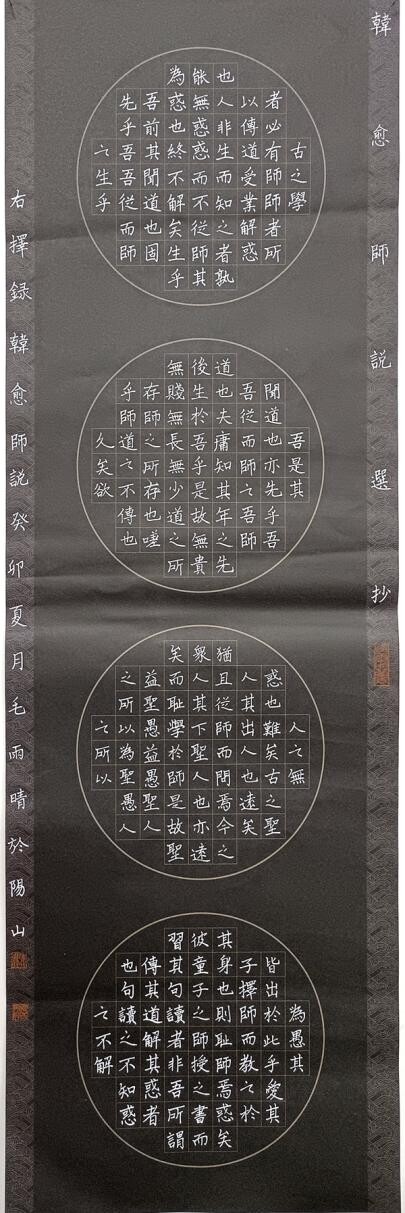 韓愈師説選抄
古之學
者必有師師者所
以傳道受業解惑
也人非生而知之者孰
能無惑惑而不從師其
為惑也終不解矣生乎
吾前其聞道也固
先乎吾吾從而師
之生乎
吾是其
聞道也亦先乎吾
吾從而師之吾師
道也夫庸知其年之先
後生於吾乎是故無貴
無賤無長無少道之所
存師之所存也嗟
乎師道之不傳也
久矣欲
人之無
惑也難矣古之聖
人其出人也遠矣
猶且從師而問焉今之
衆人其下聖人也亦遠
矣而恥學於師是故聖
益聖愚益愚聖人
之所以為聖愚人
之所以
為愚其
皆出於此乎愛其
子擇師而教之於
其身也則恥師焉惑矣
彼童子之師授之書而
習其句讀者非吾所謂
傳其道解其惑者
也句讀之不知惑
之不解
右擇録韓愈師説癸卯夏月毛雨晴於陽山